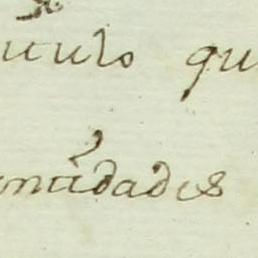 culo qu
ntidades